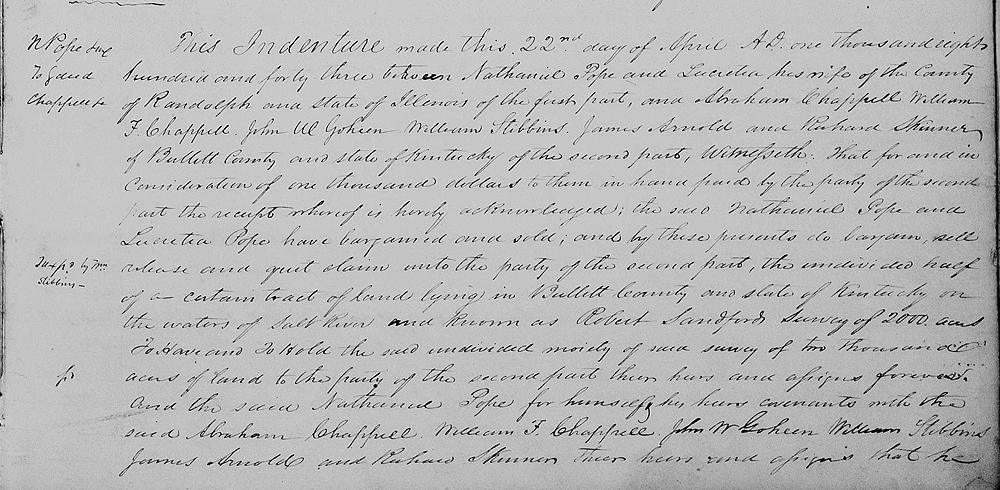 N Pope & ux
To } deed
Chappell &c
This Indenture made this 22nd day of April A.D. one thousand eight
hundred and forty three between Nathaniel Pope and Lucretia his wife of the County
of Randolph and state of Illinois of the first part, and Abraham Chappell William
F. Chappell. John W Goheen William Stibbins. James Arnold and Richard Skinner
of Bullett County and state of Kentucky of the second part, Witnesseth. That for and in
Consideration of one thousand dollars to them in hand paid by the party of the second
part the receipt whereof is hereby acknowledged; the said Nathaniel Pope and
Lucretia Pope have bargained and sold; and by these presents do bargain, sell
release and quit claim unto the party of the second part, the undivided half
of a certain tract of land lying in Bullett County and state of Kentucky on
the waters of Salt River and known as Robert Sandfords Survey of 2000. acres
To Have and To Hold the said undivided moiety of said survey of two thousand
acres of land to the party of the second part their heirs and assigns forever.
And the said Nathaniel Pope for himself & his heirs covenants with the
said Abraham Chappell. William F. Chappell. John W Goheen William Stibbins
James Arnold and Richard Skinner their heirs and assigns that he
by Wm
Stibbins